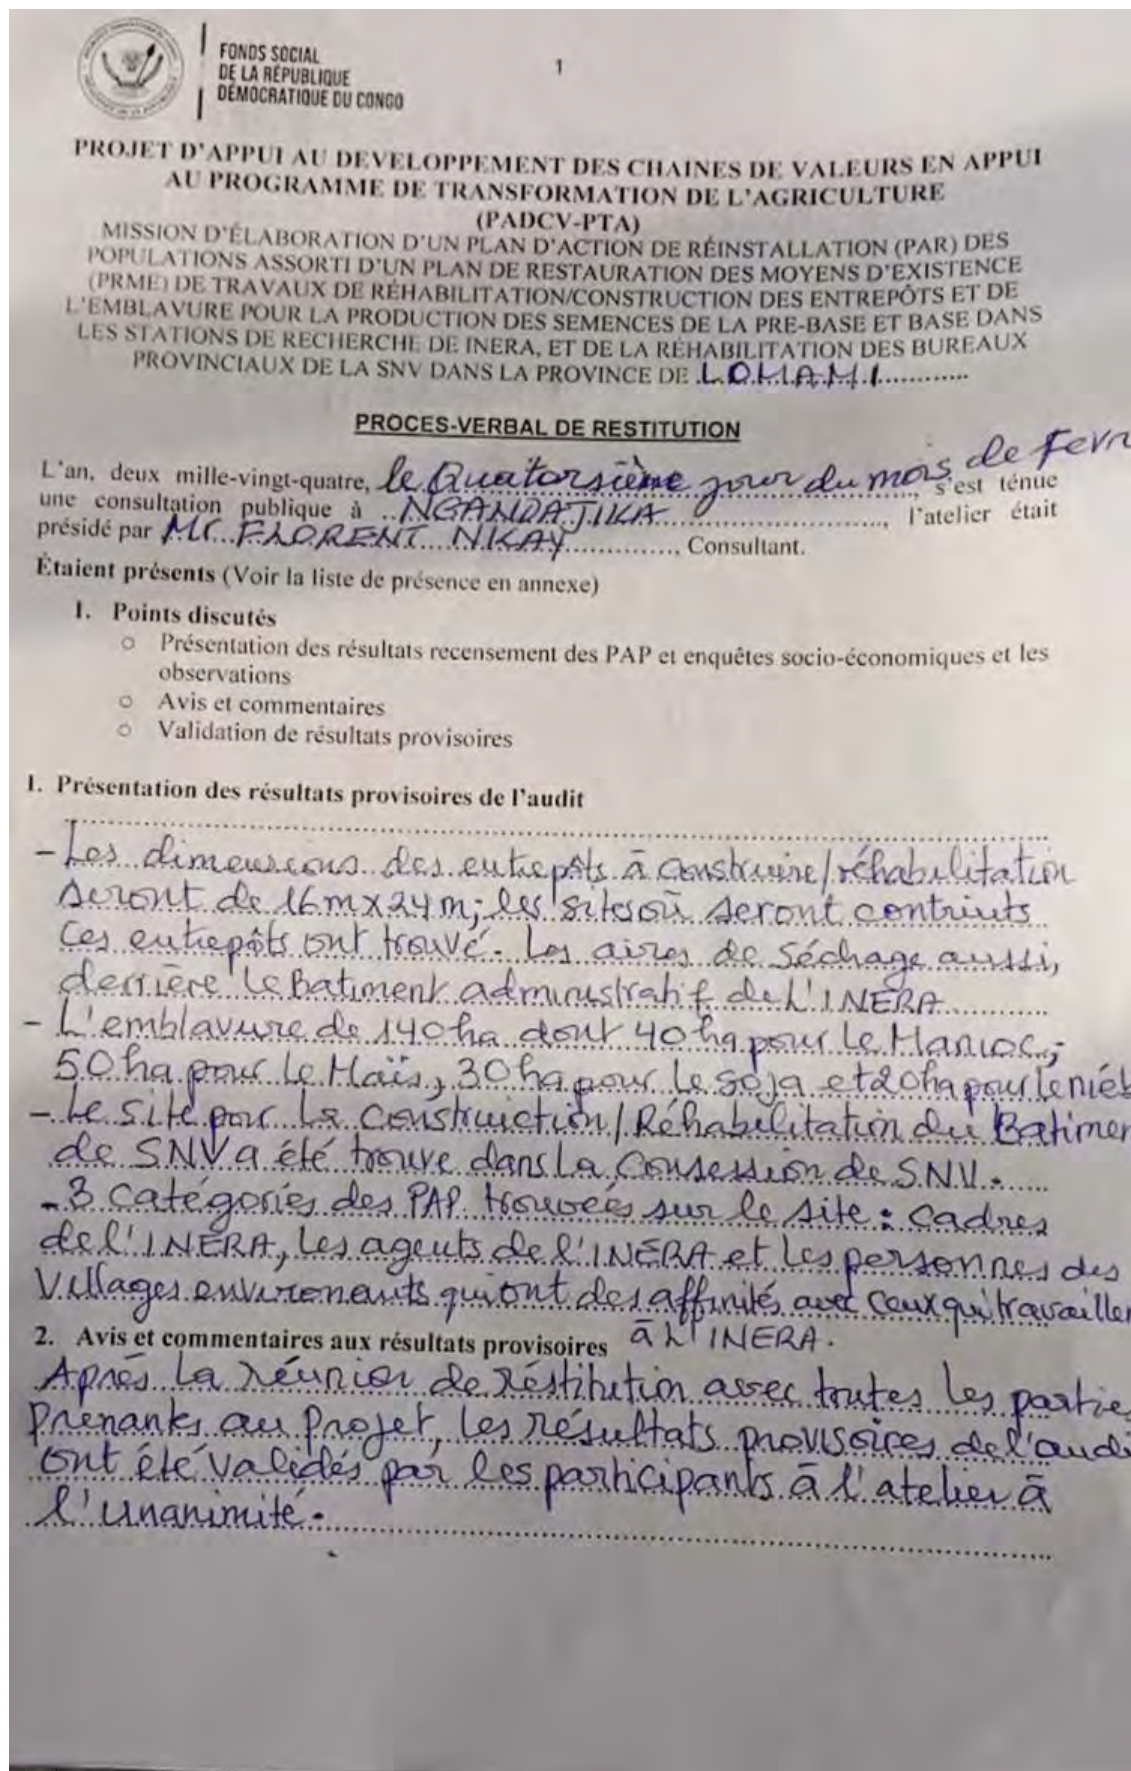 FONDS SOCIAL
DE LA RÉPUBLIQUE
DÉMOCRATIQUE DU CONGO
1
PROJET D'APPUI AU DEVELOPPEMENT DES CHAINES DE VALEURS EN APPUI
AU PROGRAMME DE TRANSFORMATION DE L'AGRICULTURE
(PADCV-PTA)
MISSION D'ÉLABORATION D'UN PLAN D'ACTION DE RÉINSTALLATION (PAR) DES
POPULATIONS ASSORTI D'UN PLAN DE RESTAURATION DES MOYENS D'EXISTENCE
(PRME) DE TRAVAUX DE RÉHABILITATION/CONSTRUCTION DES ENTREPÔTS ET DE
L'EMBLAVURE POUR LA PRODUCTION DES SEMENCES DE LA PRE-BASE ET BASE DANS
LES STATIONS DE RECHERCHE DE INERA, ET DE LA RÉHABILITATION DES BUREAUX
PROVINCIAUX DE LA SNV DANS LA PROVINCE DE LOMAMI............
PROCES-VERBAL DE RESTITUTION
L'an, deux mille-vingt-quatre, le Quatorsième jour du mois de Fevr
..., s'est ténue
une consultation publique à ..NGANDAJIKA............................, l'atelier était
présidé par Mr...FLORENT...NKAY.............., Consultant.
Étaient présents (Voir la liste de présence en annexe)
I. Points discutés
o Présentation des résultats recensement des PAP et enquêtes socio-économiques et les
observations
o Avis et commentaires
o Validation de résultats provisoires
1. Présentation des résultats provisoires de l'audit
- Les dimensions des entrepôts à construire/réhabilitation
seront de 16m x 24m; les sites où seront contriuts
ces entrepôts ont trouvé. Les aires de séchage aussi,
derrière le Batiment administratif de L'INERA
- L'emblavure de 140 ha dont 40 ha pour le Manioc,
50 ha pour le Maïs, 30 ha pour le soja et 20 ha pour le niéb
- Le site pour la construiction/Réhabilitation du Batimen
de SNV a été trouve dans La Consession de SNV.
- 3 catégories des PAP trouvées sur le site : cadres
de l'INERA, les agents de l'INERA et les personnes des
Villages environants qui ont des affinités avec ceux qui travaillen
à L'INERA.
2. Avis et commentaires aux résultats provisoires
Après la réunion de réstitution avec toutes les parties
prenantes au projet, les résultats provisoires de l'audi
ont été validés par les participants à l'atelier à
l'unanimité.